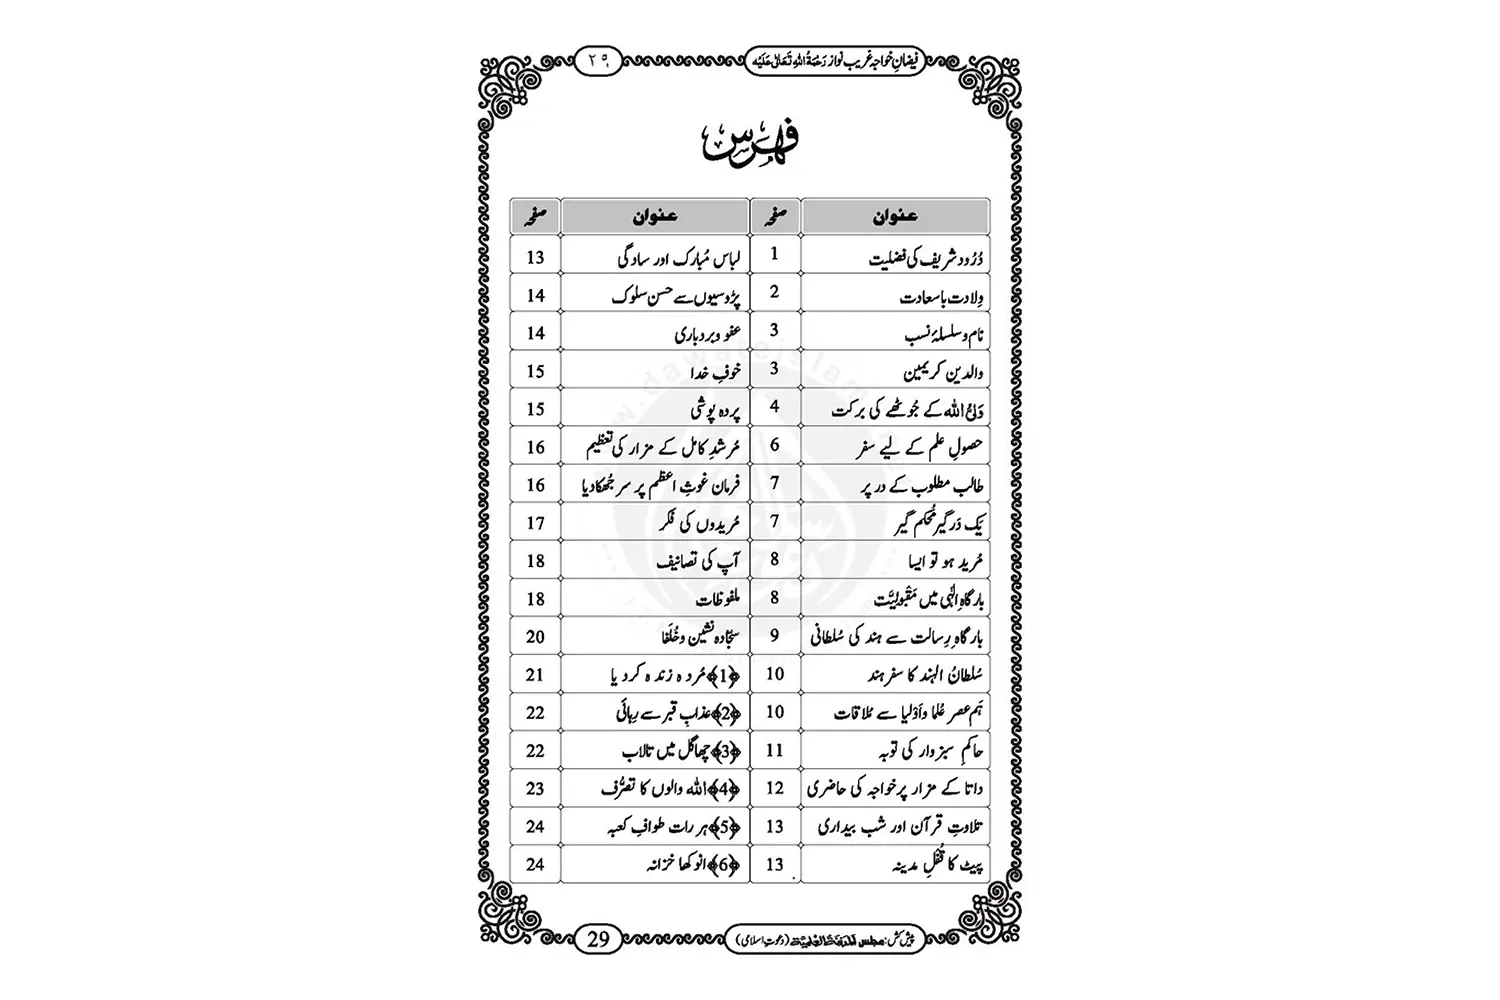 فیضانِ خواجہ غریب نواز رَحْمَۃُ اللہِ تَعَالٰی عَلَیْہ ۲۹
فہرس
عنوان صفحہ عنوان صفحہ
دُرُود شریف کی فضلیت 1 لباس مُبارک اور سادگی 13
وِلادت باسعادت 2 پڑوسیوں سے حسن سلوک 14
نام و سلسلۂ نسب 3 عفو و بردباری 14
والدین کریمین 3 خوفِ خدا 15
وَلِیُّ اللہ کے جُوٹھے کی برکت 4 پردہ پوشی 15
حصولِ علم کے لیے سفر 6 مُرشدِ کامل کے مزار کی تعظیم 16
طالب مطلوب کے در پر 7 فرمان غوثِ اعظم پر سر جُھکادیا 16
یَک دَر گیر مُحکم گیر 7 مُریدوں کی فکر 17
مُرید ہو تو ایسا 8 آپ کی تصانیف 18
بارگاہِ اِلٰہی میں مَقْبُولِیَّت 8 ملفوظات 18
بارگاہِ رِسالت سے ہند کی سُلطانی 9 سجّادہ نشین و خُلَفا 20
سُلطانُ الہند کا سفر ہند 10 ﴿1﴾ مُردہ زندہ کردیا 21
ہَم عصر عُلما و اَوْلیا سے مُلاقات 10 ﴿2﴾ عذابِ قبر سے رِہائی 22
حاکمِ سبزوار کی توبہ 11 ﴿3﴾ چھاگل میں تالاب 22
داتا کے مزار پر خواجہ کی حاضری 12 ﴿4﴾ اللہ والوں کا تصرُّف 23
تلاوتِ قرآن اور شب بیداری 13 ﴿5﴾ ہر رات طوافِ کعبہ 24
پیٹ کا قُفْلِ مدینہ 13 ﴿6﴾ انوکھا خزانہ 24
پیش کش: مجلس اَلْمَدِیْنَۃُ الْعِلْمِیَّۃ (دعوتِ اسلامی) 29